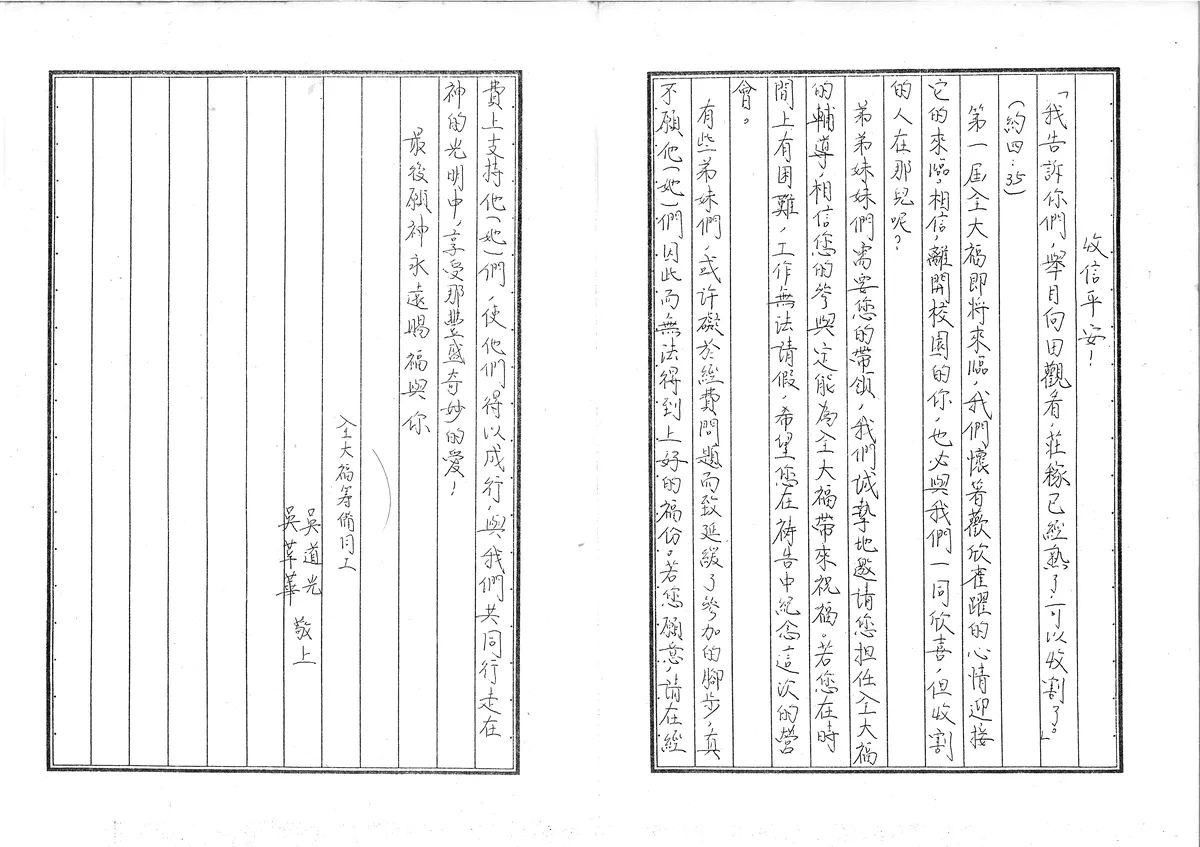 收信平安！
「我告訴你們，舉目向田觀看，莊稼已經熟了，可以收割了。」
（約四．35）
第一屆全大福即將來臨，我們懷著歡欣雀躍的心情迎接
它的來臨，相信，離開校園的你，也必與我們一同欣喜，但收割
的人在那兒呢？
弟弟妹妹們需要您的帶領，我們誠摯地邀請您担任全大福
的輔導，相信您的參與定能為全大福帶來祝福。若您在時
間上有困難，工作無法請假，希望您在禱告中紀念這次的營
會。
有些弟妹們，或許礙於經費問題而致延緩了參加的腳步，真
不願他（她）們因此而無法得到上好的福份。若您願意，請在經
費上支持他（她）們，使他們得以成行，與我們共同行走在
神的光明中，享受那豐盛奇妙的愛！
最後願神永遠賜福與你
全大福筹備同工
吳道光
吳華 敬上